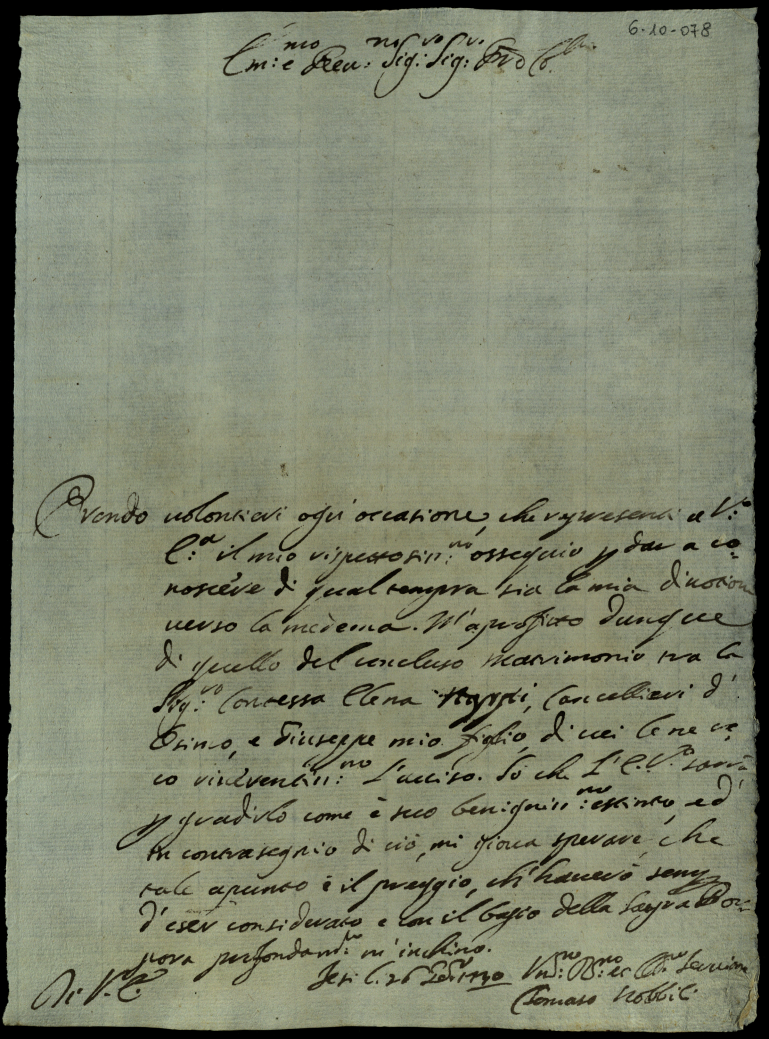 6·10-078
Em:mo e Reu:mo Sig:r Sig:r Prõ Co:
Prendo uolontieri ogn' occasione, che rappresenti a V:ra
E:za il mio rispettosiss:mo ossequio p dar a co=
noscere di qual tempra sia la mia diuotione
uerso la medema. M'aprofitto dunque
di quello del concluso matrimonio tra la
Sig:ra Contessa Elena, Cancellieri d'
Osimo, e Giuseppe mio figlio, di cui le ne re
co riuerentiss:mo L'auiso. So che L'E.V.ra sarà
p gradirlo come è suo benigniss:mo istinto, ed
in contrasegno di ciò, mi gioua sperare, che
tale apunto è il preggio, ch'hauerò semp
d'eser considerato e con il bagio della Sagra Por=
pora profondam:te m'inchino.
Di V.E. Jesi li 26 1730 Um:mo D:mo et Ob:mo Seruitore
Tomaso Nobbili